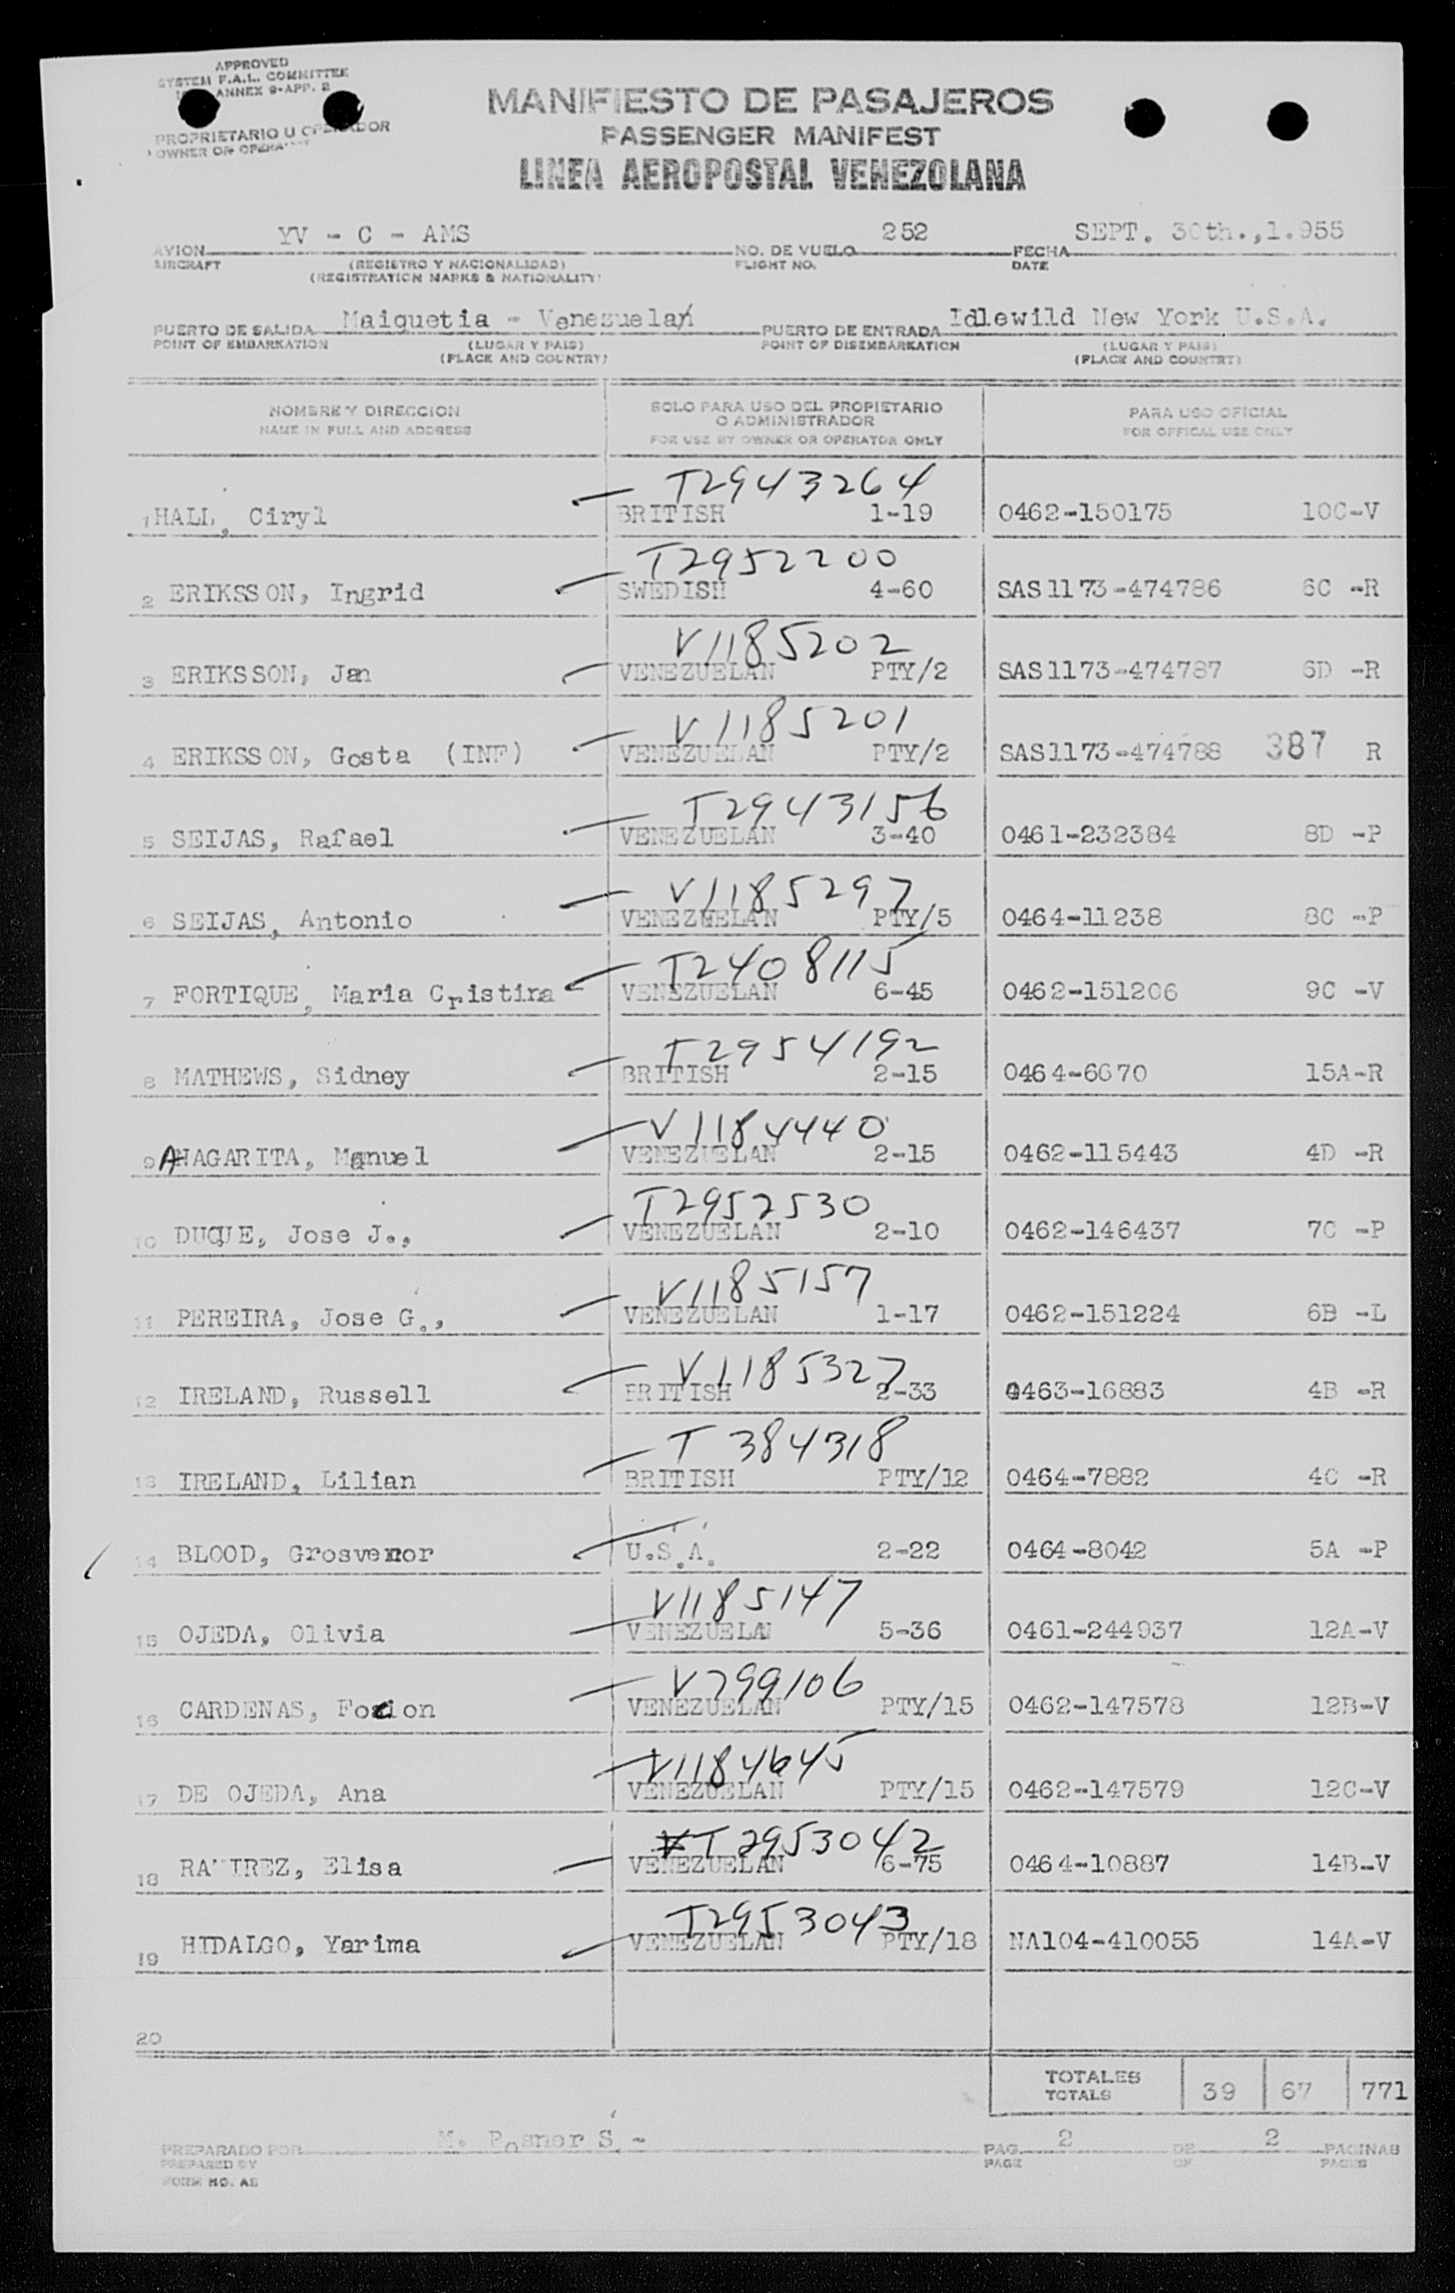 APPROVED
SYSTEM F.A.L. COMMITTEE
ANNEX 9-APP. 2
PROPRIETARIO U OPERADOR
OWNER OR OPERATOR
MANIFIESTO DE PASAJEROS
PASSENGER MANIFEST
LINEA AEROPOSTAL VENEZOLANA
AVION YV - C - AMS NO. DE VUELO 252 FECHA SEPT. 30th.,1.955
AIRCRAFT (REGISTRO Y NACIONALIDAD) FLIGHT NO. DATE
(REGISTRATION MARKS & NATIONALITY)
PUERTO DE SALIDA Maiquetia - Venezuela PUERTO DE ENTRADA Idlewild New York U.S.A.
POINT OF EMBARKATION (LUGAR Y PAIS) POINT OF DISEMBARKATION (LUGAR Y PAIS)
(PLACE AND COUNTRY) (PLACE AND COUNTRY)
NOMBRE Y DIRECCION SOLO PARA USO DEL PROPIETARIO PARA USO OFICIAL
O ADMINISTRADOR
NAME IN FULL AND ADDRESS FOR USE BY OWNER OR OPERATOR ONLY FOR OFFICAL USE ONLY
T2943264
1 HALL, Ciryl BRITISH 1-19 0462-150175 10C-V
T2952200
2 ERIKSSON, Ingrid SWEDISH 4-60 SAS1173-474786 6C -R
V1185202
3 ERIKSSON, Jan VENEZUELAN PTY/2 SAS1173-474787 6D -R
V1185201
4 ERIKSSON, Gosta (INF) VENEZUELAN PTY/2 SAS1173-474788 387 R
T2943156
5 SEIJAS, Rafael VENEZUELAN 3-40 0461-232384 8D -P
V1185297
6 SEIJAS, Antonio VENEZUELAN PTY/5 0464-11238 8C -P
T2408115
7 FORTIQUE, Maria Cristina VENEZUELAN 6-45 0462-151206 9C -V
T2954192
8 MATHEWS, Sidney BRITISH 2-15 0464-6670 15A-R
V1184440
9 AHAGARITA, Manuel VENEZUELAN 2-15 0462-115443 4D -R
T2952530
10 DUQUE, Jose J., VENEZUELAN 2-10 0462-146437 7C -P
V1185157
11 PEREIRA, Jose G., VENEZUELAN 1-17 0462-151224 6B -L
V1185327
12 IRELAND, Russell BRITISH 2-33 0463-16883 4B -R
T384318
13 IRELAND, Lilian BRITISH PTY/12 0464-7882 4C -R
14 BLOOD, Grosvenor U.S.A. 2-22 0464-8042 5A -P
V1185147
15 OJEDA, Olivia VENEZUELAN 5-36 0461-244937 12A-V
V799106
16 CARDENAS, Focion VENEZUELAN PTY/15 0462-147578 12B-V
V1184645
17 DE OJEDA, Ana VENEZUELAN PTY/15 0462-147579 12C-V
T2953042
18 RAMIREZ, Elisa VENEZUELAN 6-75 0464-10887 14B-V
T2953043
19 HIDALGO, Yarima VENEZUELAN PTY/18 NA104-410055 14A-V
20
TOTALES
TOTALS 39 67 771
PREPARADO POR M. Posner S.- PAG. 2 DE 2 PAGINAS
PREPARED BY PAGE OF PAGES
FORM NO. AE